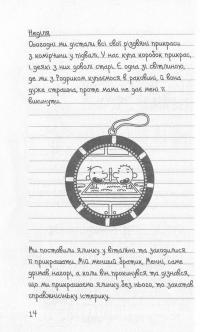 Неділя
Сьогодні ми дістали всі свої різдвяні прикраси
з комірчини у підвалі. У нас купа коробок прикрас,
і деякі з них доволі старі. Є одна зі світлиною,
де ми з Родріком купаємося в раковині, й вона
дуже страшна, проте мама не дає мені її
викинути.
Ми поставили ялинку у вітальні та заходилися
її прикрашати. Мій менший братик, Менні, саме
дрімав нагорі, а коли він прокинувся та дізнався,
що ми прикрашаємо ялинку без нього, то закатав
справжнісіньку істерику.
14